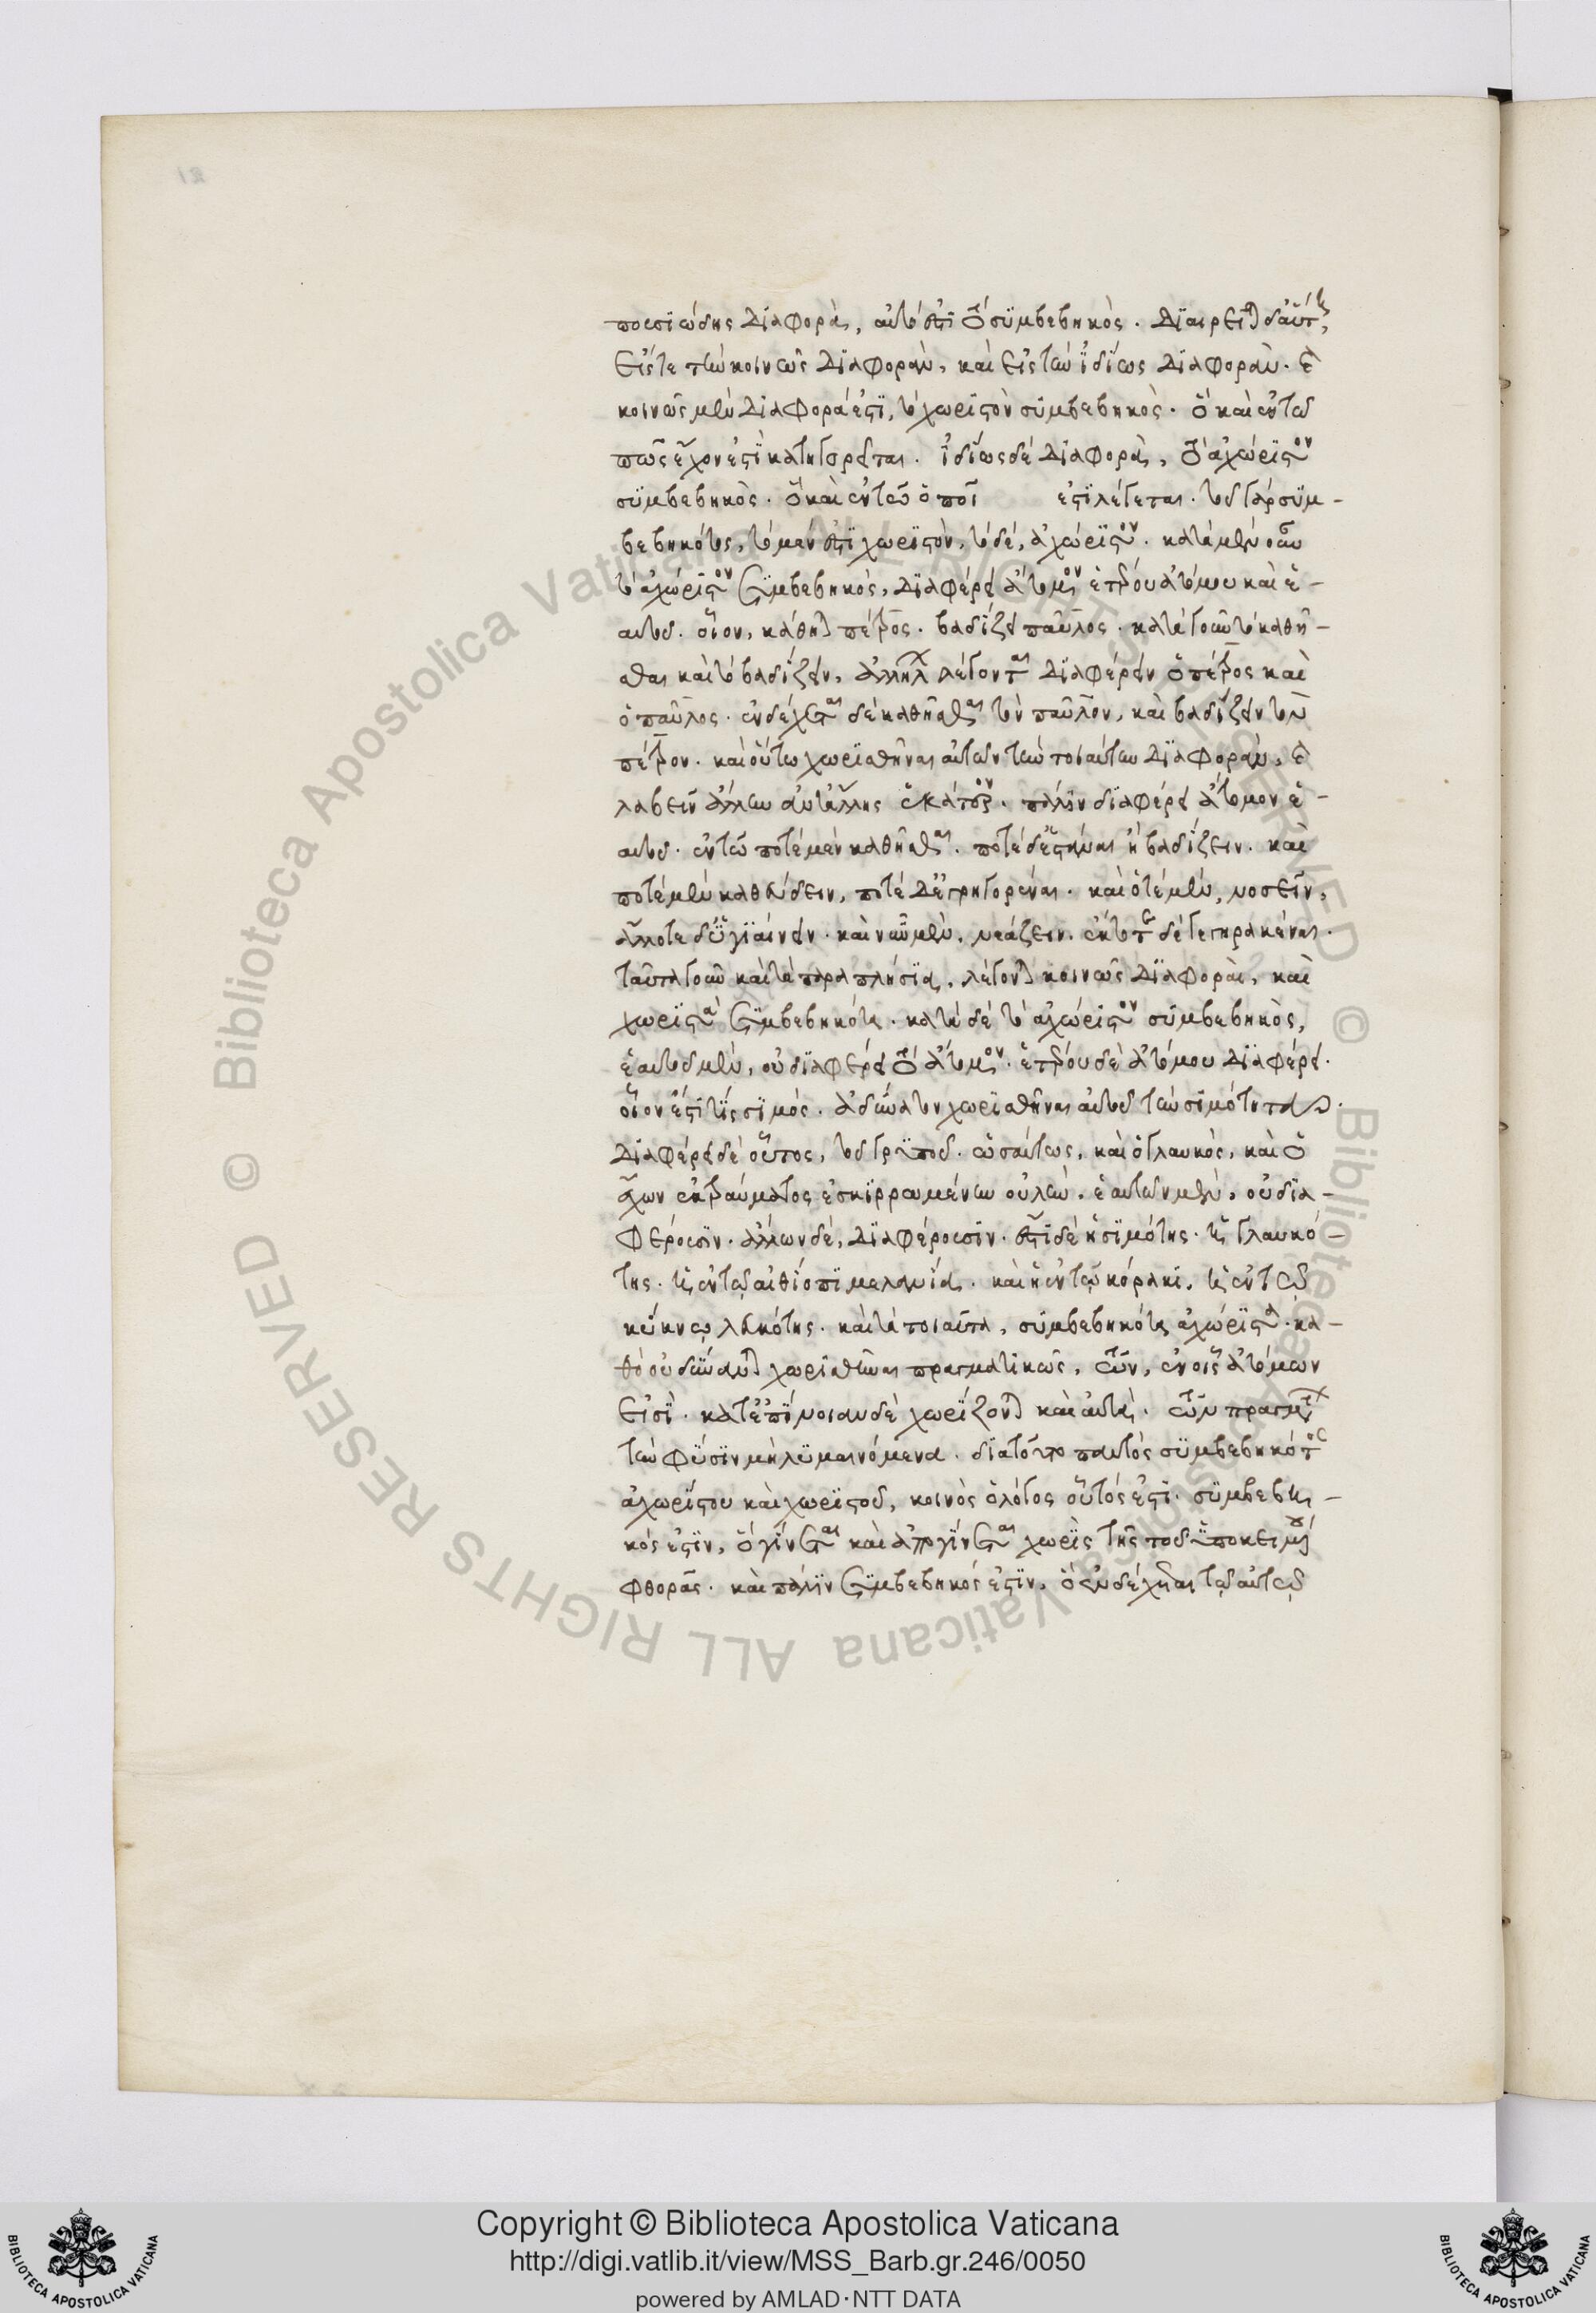 πουσιώδης διαφορὰ, αὐτό ἐστι τὸ συμβεβηκός. διαιρεῖται δ' αὕτη,
εἴς τε τὴν κοινῶς διαφορὰν, καὶ εἰς τὴν ἰδίως διαφορὰν. καὶ
κοινῶς μὲν διαφορά ἐστι, τὸ χωριστὸν συμβεβηκὸς. ὃ καὶ ἐν τῷ
πῶς ἔχον ἐστὶ κατηγορεῖται. ἰδίως δὲ διαφορὰ, τὸ ἀχώριστον
συμβεβηκὸς. ὃ καὶ ἐν τῶ ὁποῖ ἐστι λέγεται. τοῦ γὰρ συμ-
βεβηκότος, τὸ μέν ἐστι χωριστὸν, τὸ δέ, ἀχώριστον. κατὰ μὲν οὖν
τὸ ἀχώριστον συμβεβηκὸς, διαφέρει ἄτομον ἑτέρου ἀτόμου καὶ ἑ-
αυτοῦ. οἷον, κάθηται πέτρος. βαδίζει παῦλος. κατὰ γοῦν τὸ καθῆ-
σθαι καὶ τὸ βαδίζειν, ἀλλήλων λέγονται διαφέρειν ὁ πέτρος καὶ
ὁ παῦλος. ἐνδέχεται δὲ καθῆσθαι τὸν παῦλον, καὶ βαδίζειν τὸν
πέτρον. καὶ οὕτω χωρισθῆναι αὐτῶν τὴν τοιαύτην διαφορὰν, καὶ
λαβεῖν ἄλλην ἀντ' ἄλλης ἑκάτερον. πάλιν διαφέρει ἄτομον ἑ-
αυτοῦ. ἐν τῶ ποτὲ μὲν καθῆσθαι. ποτὲ δ' ἑστάναι ἢ βαδίζειν. καὶ
ποτὲ μὲν καθεύδειν, ποτὲ δ' ἐγρηγορέναι. καὶ ὁτὲ μὲν, νοσεῖν,
ἄλλοτε δ' ὑγιαίνειν. καὶ νῦν μὲν, νεάζειν. ἐκ τότε δὲ γεγηρακέναι.
ταῦτα γοῦν καὶ τὰ παραπλήσια, λέγονται κοινῶς διαφοραὶ, καὶ
χωριστὰ συμβεβηκότα. κατὰ δὲ τὸ ἀχώριστον συμβεβηκὸς,
ἑαυτοῦ μὲν, οὐ διαφέρει τὸ ἄτομον. ἑτέρου δὲ ἀτόμου διαφέρει.
οἷον ἐστί τις σιμός. ἀδύνατον χωρισθῆναι αὐτοῦ τὴν σιμότητα.
διαφέρει δὲ οὗτος, τοῦ γρυποῦ. ὡσαύτως, καὶ ὁ γλαυκὸς, καὶ ὁ
ἔχων ἐκ τραύματος ἐσκιρρωμένην οὐλὴν. ἑαυτῶν μὲν, οὐ δια-
φέρουσιν. ἄλλων δὲ, διαφέρουσιν. ἔστι δὲ ἡ σιμότης. καὶ ἡ γλαυκό-
της. καὶ ἡ ἐν τῷ αἰθίοπι μελανία. καὶ ἡ ἐν τῷ κόρακι, καὶ ἡ ἐν τῷ
κύκνῳ λευκότης. καὶ τὰ τοιαῦτα, συμβεβηκότα ἀχώριστα. κα-
θὸ οὐ δύναται χωρισθῆναι πραγματικῶς, τῶν, ἐν οἷς ἀτόμων
εἰσὶ. κατ' ἐπίνοιαν δὲ χωρίζονται καὶ αὐτὰ. τῶν πραγμάτων
τὴν φύσιν μὴ λυμαινόμενα. διὰ τοῦτο παντὸς συμβεβηκότος
ἀχωρίστου καὶ χωριστοῦ, κοινὸς ὁ λόγος οὗτός ἐστι. συμβεβη-
κός ἐστιν, ὃ γίνεται καὶ ἀπογίνεται χωρὶς τῆς τοῦ ὑποκειμένου
φθορᾶς. καὶ πάλιν συμβεβηκός ἐστιν, ὃ ἐνδέχεται τῷ αὐτῷ
Copyright © Biblioteca Apostolica Vaticana
http://digi.vatlib.it/view/MSS_Barb.gr.246/0050
powered by AMLAD·NTT DATA
© Biblioteca Apostolica Vaticana ALL RIGHTS RESERVED
BIBLIOTECA APOSTOLICA VATICANA
BIBLIOTECA APOSTOLICA VATICANA